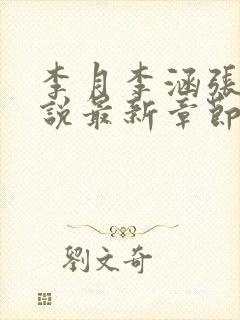 李月李涵張
説最新章節
劉文奇